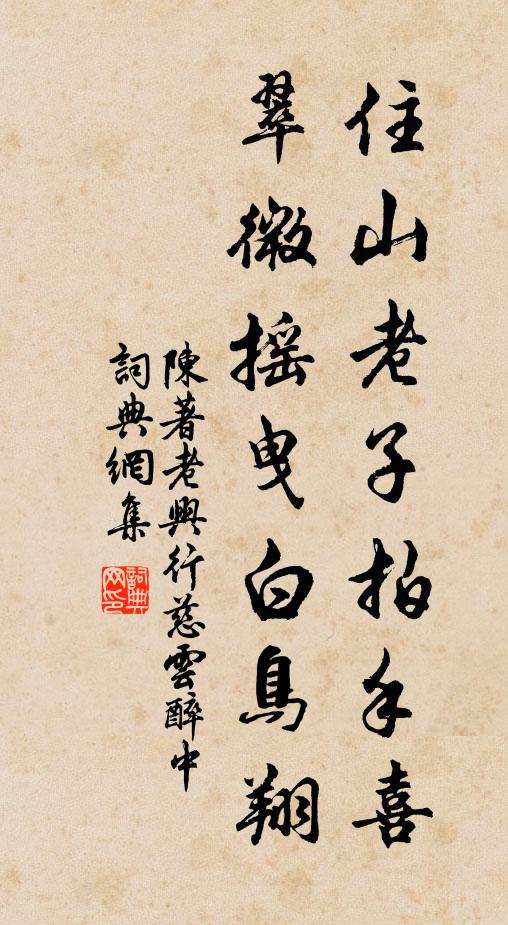 住山老子拍手喜
翠微摇曳白鳥翔
陳著老興行慈雲醉中
詞典網集
詞典網印